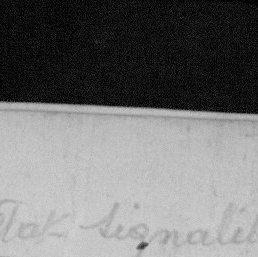 Tak signalit